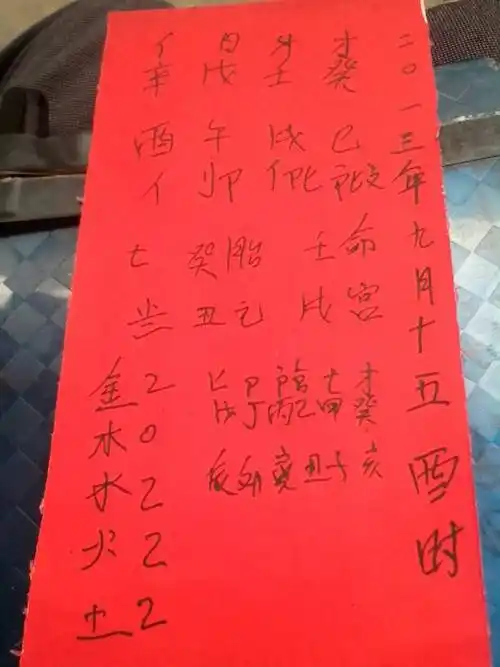 二〇一三年九月十五酉时
才癸巳
壬戌
日戊午
亻辛酉亻
命宫
壬戌
胎元
癸丑
才癸亥
甲子
乙丑
丙寅
丁卯
戊辰
金2
木0
水2
火2
土2